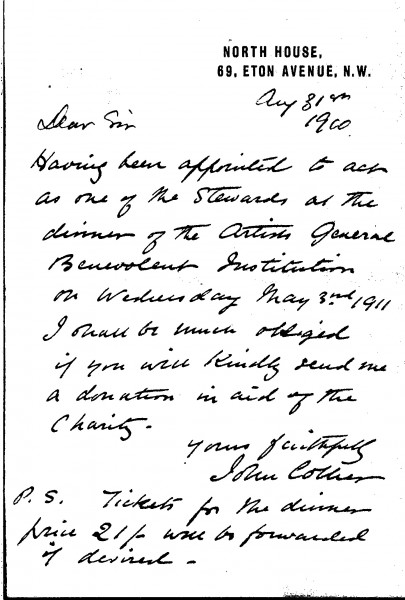 NORTH HOUSE,
69, ETON AVENUE, N.W.
Aug 31st
1910
Dear Sir
Having been appointed to act
as one of the Stewards at the
dinner of the Artists General
Benevolent Institution
on Wednesday May 3rd 1911
I shall be much obliged
if you will kindly send me
a donation in aid of the
Charity.
Yours faithfully
John Collier
P.S. Tickets for the dinner
price 21/- will be forwarded
if desired -